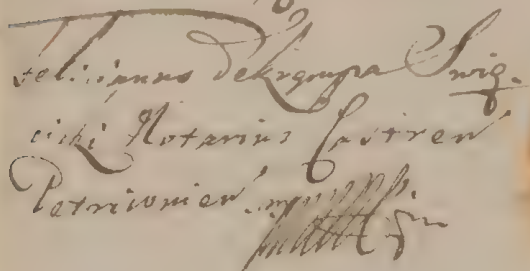 Felicianus de Krgumpa Swię-
cicki Notarius Castren
Petricovien mpp